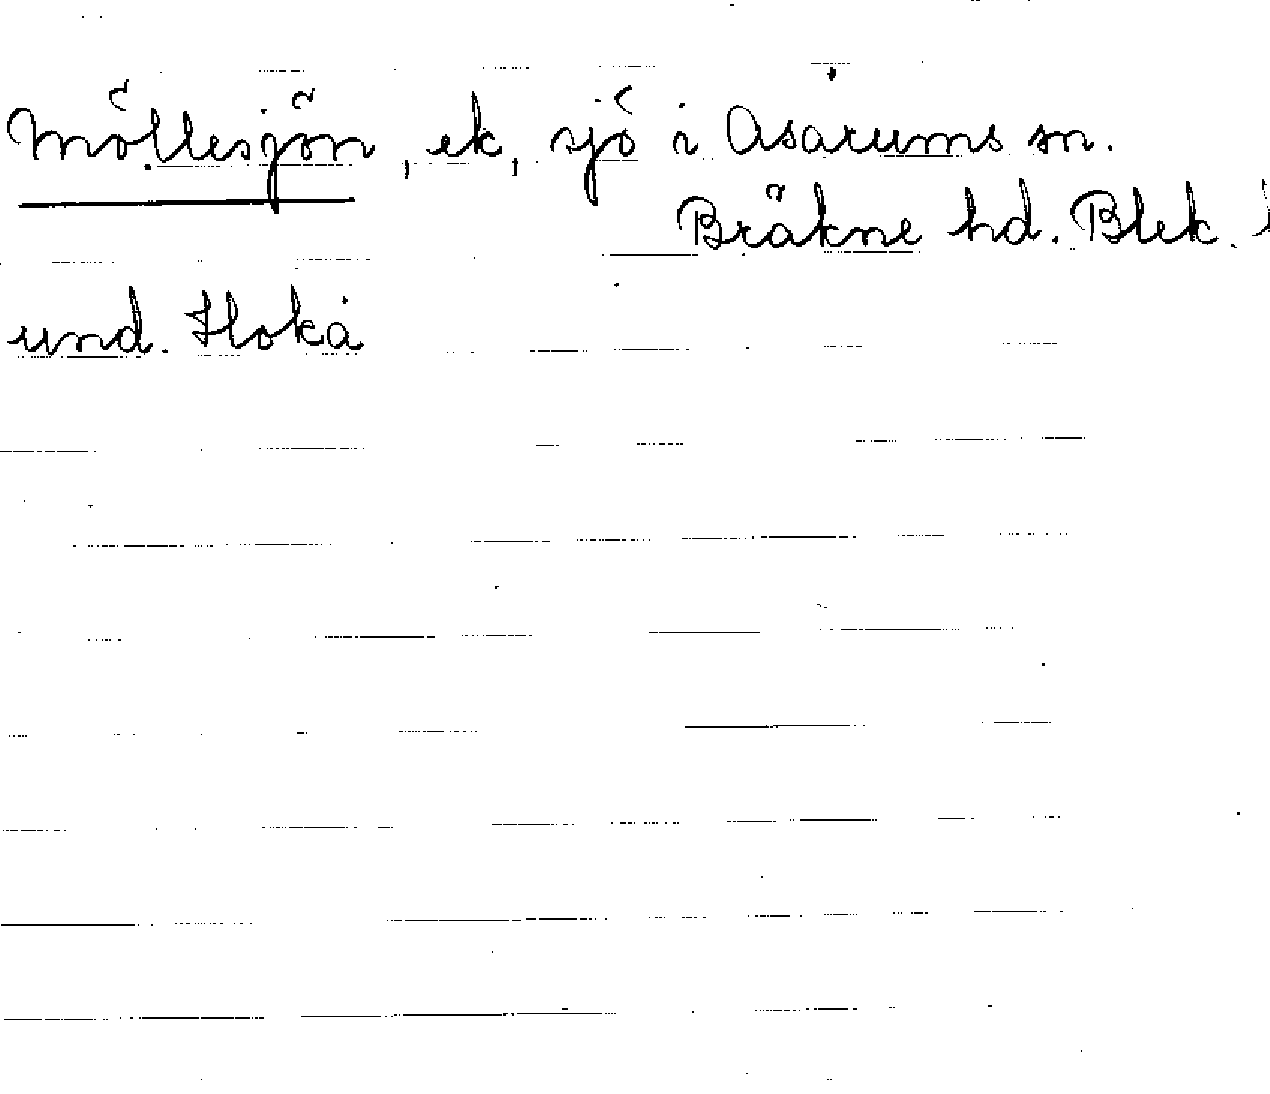 Möllesjön, ek, sjö i Asarums sn.
Bräkne hd. Blek.
und. Hokå